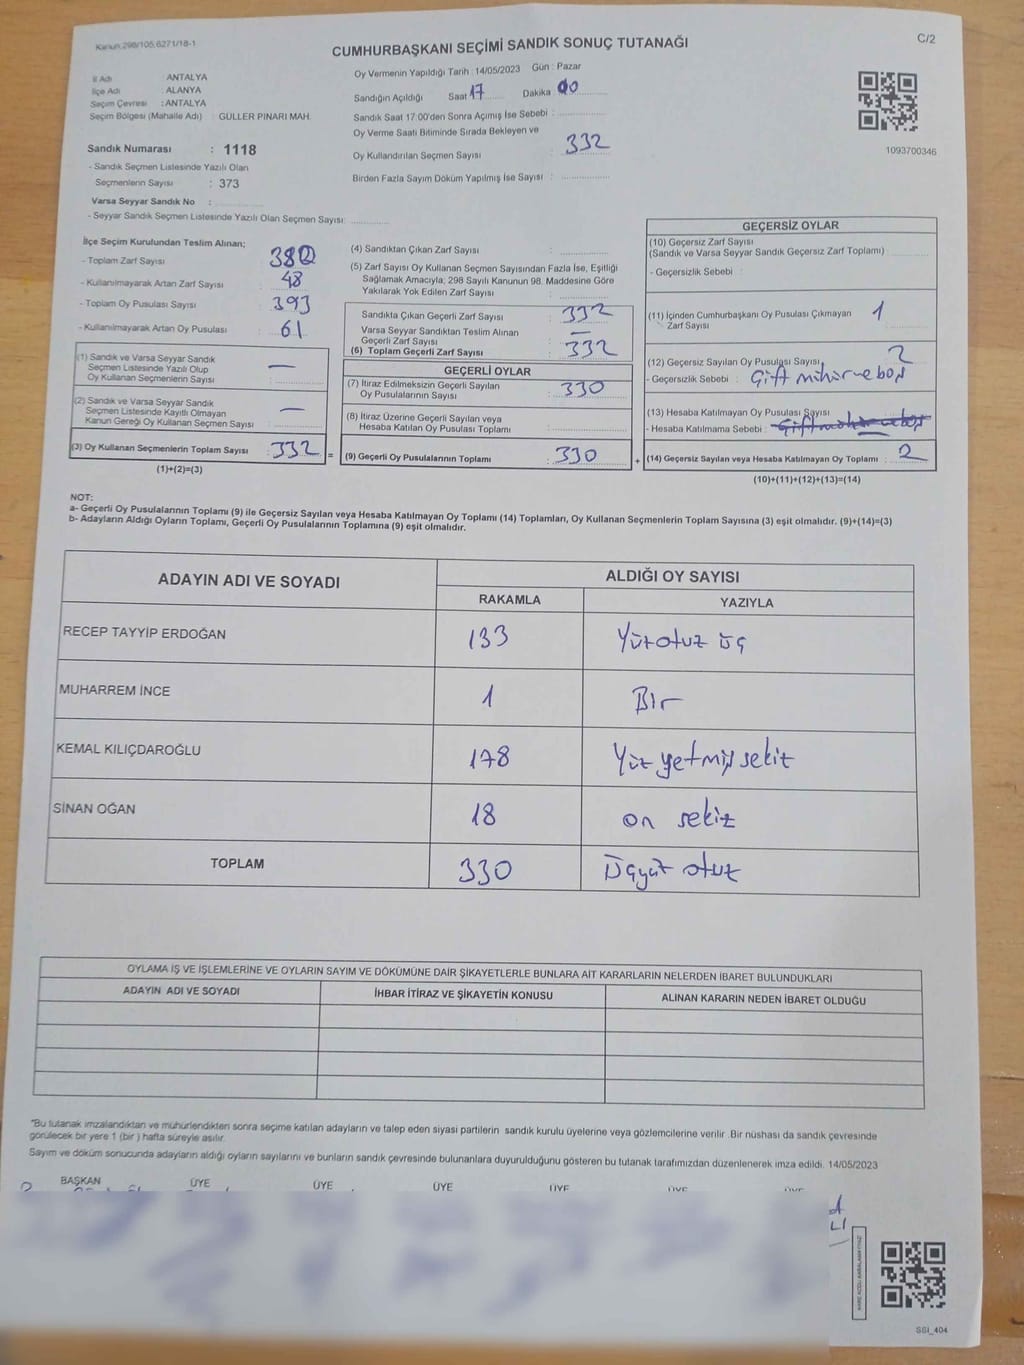 Kanun 298/105,6271/18-1
C/2
CUMHURBAŞKANI SEÇİMİ SANDIK SONUÇ TUTANAĞI
İl Adı : ANTALYA
İlçe Adı : ALANYA
Seçim Çevresi : ANTALYA
Seçim Bölgesi (Mahalle Adı) : GÜLLER PINARI MAH.
Sandık Numarası : 1118
- Sandık Seçmen Listesinde Yazılı Olan
Seçmenlerin Sayısı : 373
Varsa Seyyar Sandık No :
- Seyyar Sandık Seçmen Listesinde Yazılı Olan Seçmen Sayısı:
Oy Vermenin Yapıldığı Tarih : 14/05/2023 Gün : Pazar
Sandığın Açıldığı Saat 17 Dakika 00
Sandık Saat 17:00'den Sonra Açılmış İse Sebebi :
Oy Verme Saati Bitiminde Sırada Bekleyen ve
Oy Kullandırılan Seçmen Sayısı : 332
Birden Fazla Sayım Döküm Yapılmış İse Sayısı :
1093700346
İlçe Seçim Kurulundan Teslim Alınan;
- Toplam Zarf Sayısı : 380
- Kullanılmayarak Artan Zarf Sayısı : 48
- Toplam Oy Pusulası Sayısı : 393
- Kullanılmayarak Artan Oy Pusulası : 61
(1) Sandık ve Varsa Seyyar Sandık
Seçmen Listesinde Yazılı Olup
Oy Kullanan Seçmenlerin Sayısı : —
(2) Sandık ve Varsa Seyyar Sandık
Seçmen Listesinde Kayıtlı Olmayan
Kanun Gereği Oy Kullanan Seçmen Sayısı : —
(3) Oy Kullanan Seçmenlerin Toplam Sayısı : 332 =
(1)+(2)=(3)
(4) Sandıktan Çıkan Zarf Sayısı :
(5) Zarf Sayısı Oy Kullanan Seçmen Sayısından Fazla İse, Eşitliği
Sağlamak Amacıyla; 298 Sayılı Kanunun 98. Maddesine Göre
Yakılarak Yok Edilen Zarf Sayısı :
Sandıkta Çıkan Geçerli Zarf Sayısı : 332
Varsa Seyyar Sandıktan Teslim Alınan
Geçerli Zarf Sayısı : —
(6) Toplam Geçerli Zarf Sayısı : 332
GEÇERLİ OYLAR
(7) İtiraz Edilmeksizin Geçerli Sayılan
Oy Pusulalarının Sayısı : 330
(8) İtiraz Üzerine Geçerli Sayılan veya
Hesaba Katılan Oy Pusulası Toplamı :
(9) Geçerli Oy Pusulalarının Toplamı : 330 +
GEÇERSİZ OYLAR
(10) Geçersiz Zarf Sayısı
(Sandık ve Varsa Seyyar Sandık Geçersiz Zarf Toplamı) :
- Geçersizlik Sebebi :
(11) İçinden Cumhurbaşkanı Oy Pusulası Çıkmayan
Zarf Sayısı : 1
(12) Geçersiz Sayılan Oy Pusulası Sayısı : 2
- Geçersizlik Sebebi : Çift mühür ve boş
(13) Hesaba Katılmayan Oy Pusulası Sayısı
- Hesaba Katılmama Sebebi : Çift mühür ve boş
(14) Geçersiz Sayılan veya Hesaba Katılmayan Oy Toplamı : 2
(10)+(11)+(12)+(13)=(14)
NOT:
a- Geçerli Oy Pusulalarının Toplamı (9) ile Geçersiz Sayılan veya Hesaba Katılmayan Oy Toplamı (14) Toplamları, Oy Kullanan Seçmenlerin Toplam Sayısına (3) eşit olmalıdır. (9)+(14)=(3)
b- Adayların Aldığı Oyların Toplamı, Geçerli Oy Pusulalarının Toplamına (9) eşit olmalıdır.
ADAYIN ADI VE SOYADI
ALDIĞI OY SAYISI
RAKAMLA YAZIYLA
RECEP TAYYİP ERDOĞAN 133 Yüz otuz üç
MUHARREM İNCE 1 Bir
KEMAL KILIÇDAROĞLU 178 Yüz yetmiş sekiz
SİNAN OĞAN 18 on sekiz
TOPLAM 330 Üçyüz otuz
OYLAMA İŞ VE İŞLEMLERİNE VE OYLARIN SAYIM VE DÖKÜMÜNE DAİR ŞİKAYETLERLE BUNLARA AİT KARARLARIN NELERDEN İBARET BULUNDUKLARI
ADAYIN ADI VE SOYADI İHBAR İTİRAZ VE ŞİKAYETİN KONUSU ALINAN KARARIN NEDEN İBARET OLDUĞU
"Bu tutanak imzalandıktan ve mühürlendikten sonra seçime katılan adayların ve talep eden siyasi partilerin sandık kurulu üyelerine veya gözlemcilerine verilir. Bir nüshası da sandık çevresinde
görülecek bir yere 1 (bir) hafta süreyle asılır.
Sayım ve döküm sonucunda adayların aldığı oyların sayılarını ve bunların sandık çevresinde bulunanlara duyurulduğunu gösteren bu tutanak tarafımızdan düzenlenerek imza edildi. 14/05/2023
BAŞKAN ÜYE ÜYE ÜYE ÜYE ÜYE ÜYE
SSI_404